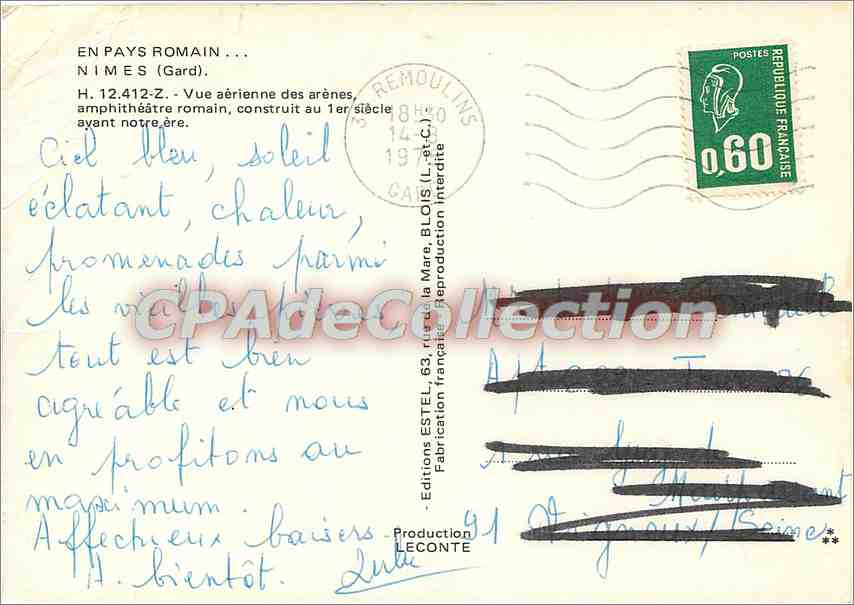 EN PAYS ROMAIN . . .
NIMES (Gard).
H. 12.412-Z. - Vue aérienne des arènes,
amphithéâtre romain, construit au 1er siècle
avant notre ère.
Ciel bleu, soleil
éclatant, chaleur,
promenades parmi
les vieilles pierres,
tout est bien
agréable et nous
en profitons au
maximum.
Affectueux baisers -
A. bientôt.
REMOULINS
18H30
14-8
GARD
- Editions ESTEL, 63, rue de la Mare, BLOIS (L.-et-C.) -
Fabrication française - Reproduction interdite
Production
LECONTE
POSTES
REPUBLIQUE FRANÇAISE
0,60
CPAdeCollection
91
/Seine
*
**